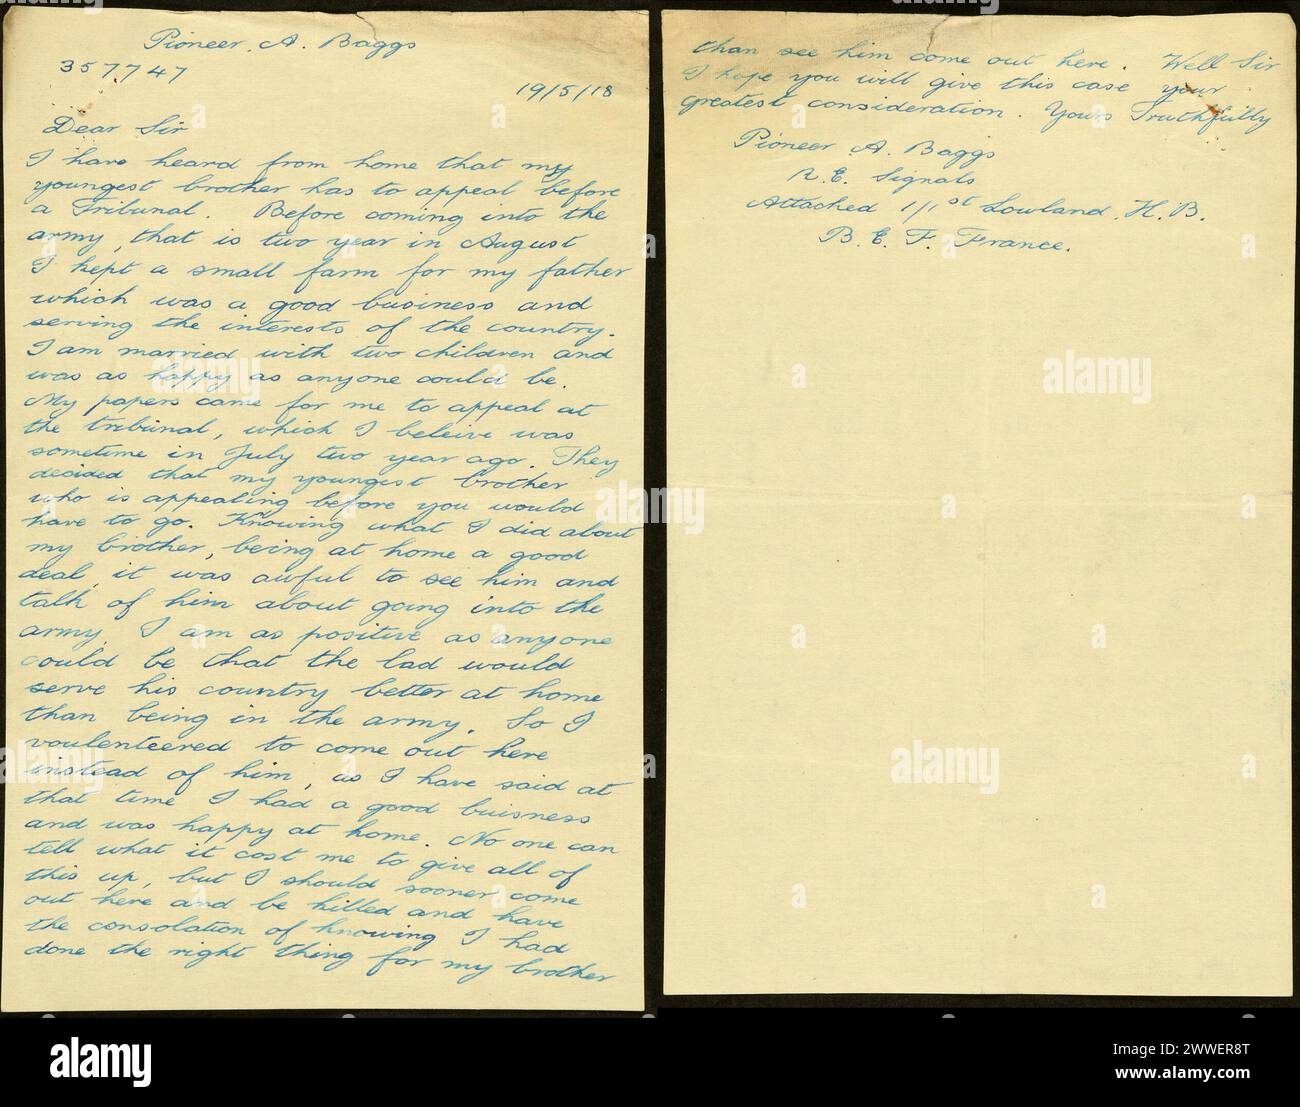 Pioneer. A. Baggs
357747
19/5/18
Dear Sir
I have heard from home that my
youngest brother has to appeal before
a Tribunal. Before coming into the
army, that is two year in August
I kept a small farm for my father
which was a good business and
serving the interests of the country.
I am married with two children and
was as happy as anyone could be.
My papers came for me to appeal at
the tribunal, which I beleive was
sometime in July two year ago. They
decided that my youngest brother
who is appealing before you would
have to go. Knowing what I did about
my brother, being at home a good
deal, it was awful to see him and
talk of him about going into the
army. I am as positive as anyone
could be that the lad would
serve his country better at home
than being in the army. So I
voulenteered to come out here
instead of him, as I have said at
that time I had a good buisness
and was happy at home. No one can
tell what it cost me to give all of
this up, but I should sooner come
out here and be killed and have
the consolation of knowing I had
done the right thing for my brother
than see him come out here. Well Sir
I hope you will give this case your
greatest consideration. Yours Truthfully
Pioneer A. Baggs
R.E. Signals
Attached 1/1st Lowland. H.B.
B.E.F. France.
alamy
Image ID: 2WWER8T
www.alamy.com